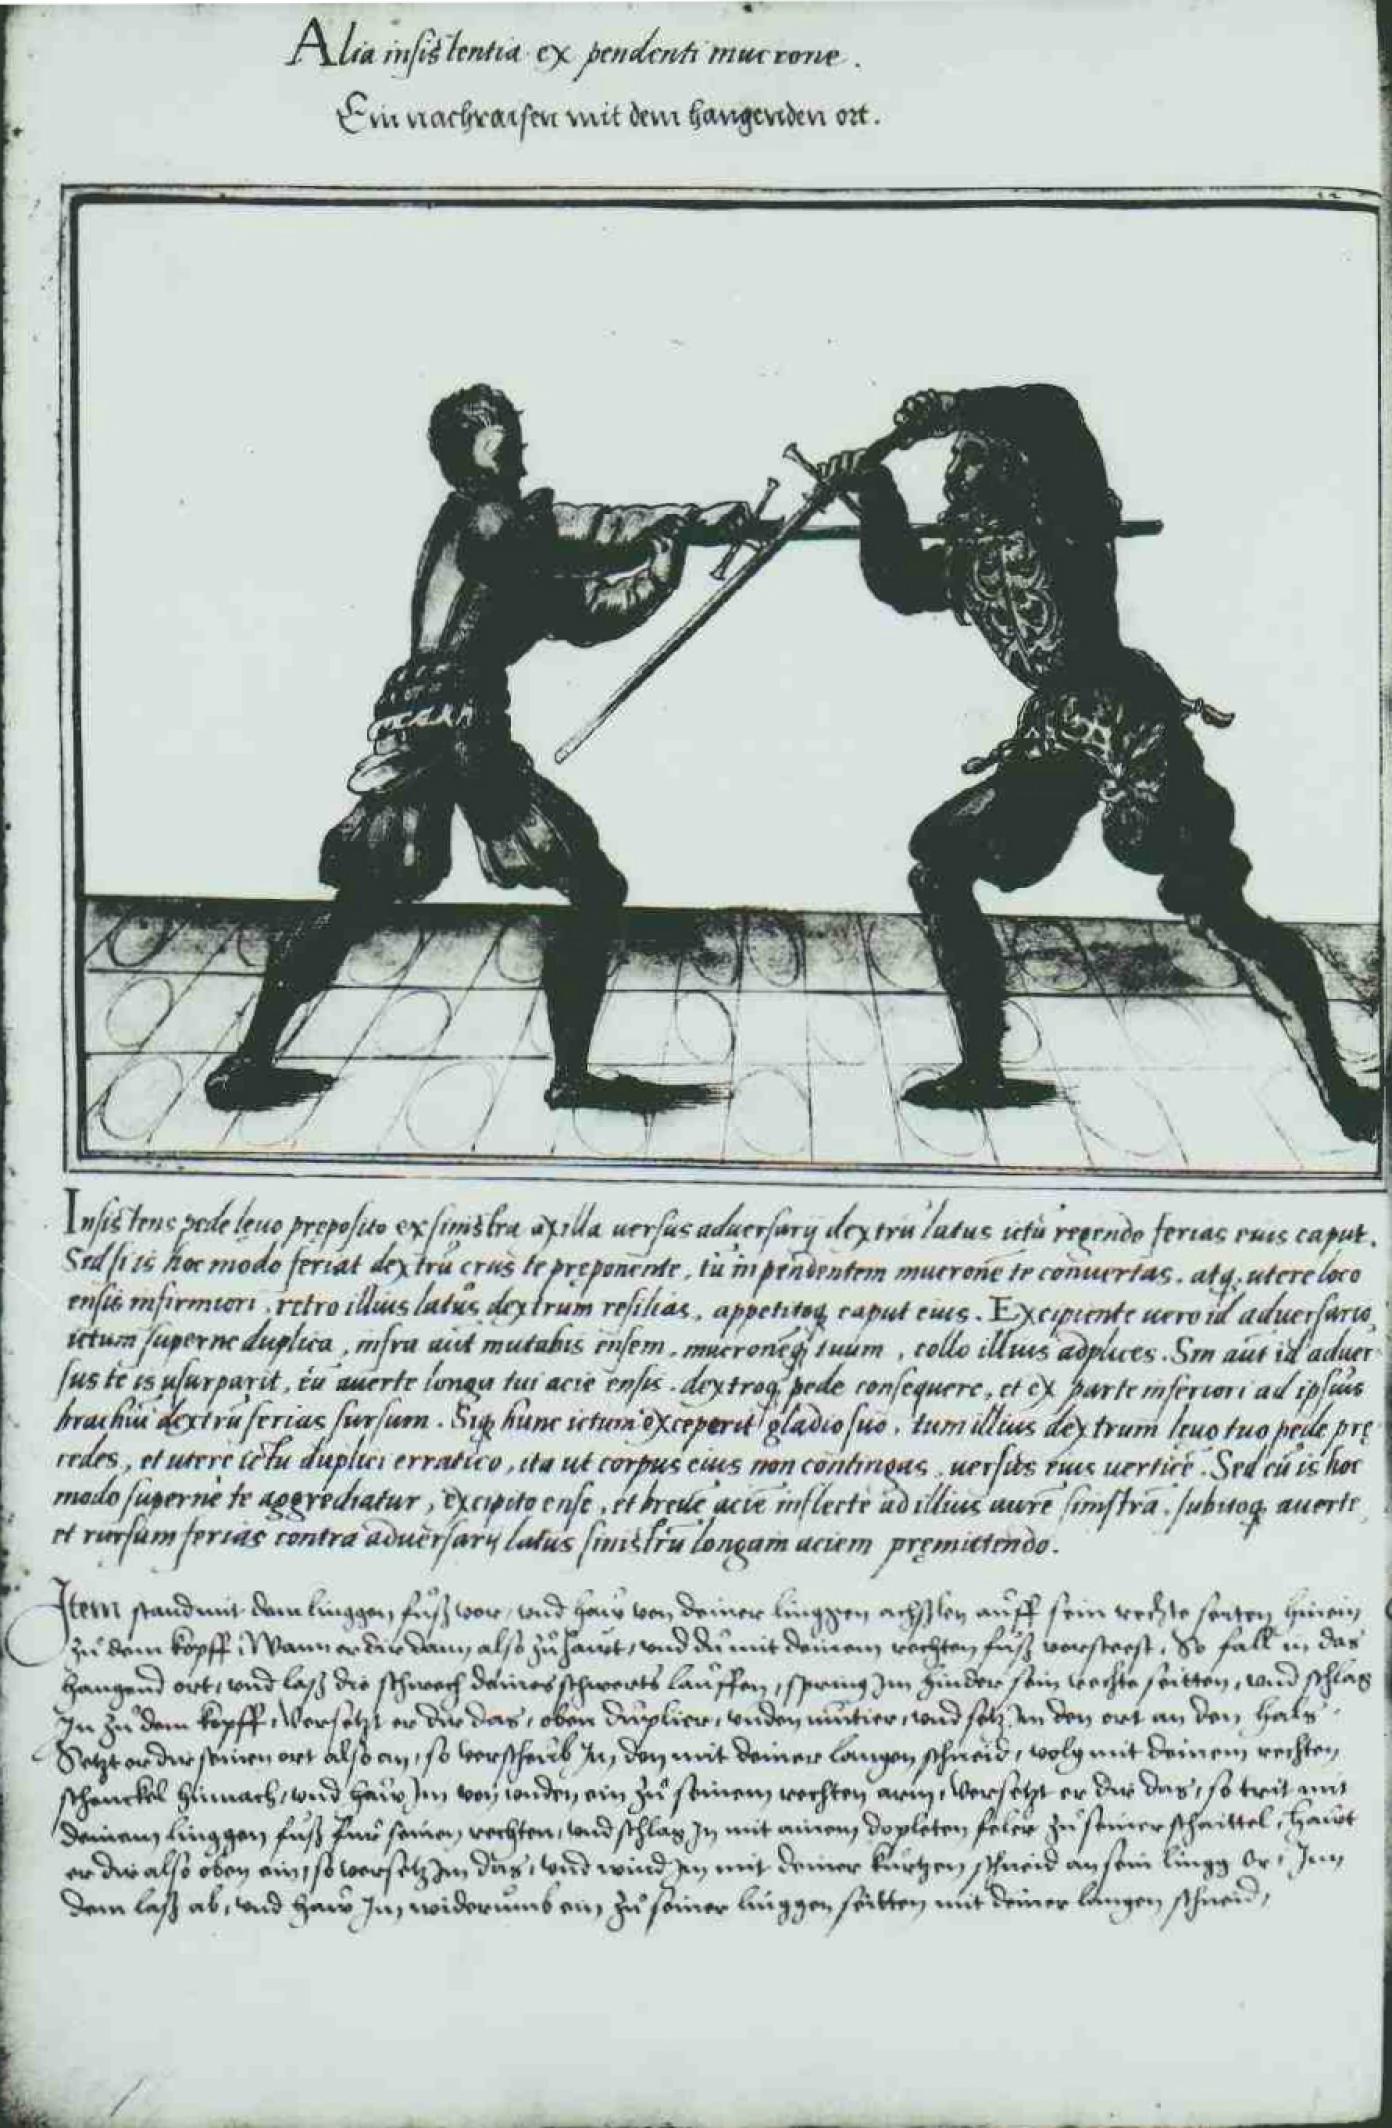 Alia insistentia ex pendenti mucrone.
Ein nachraisen mit dem hangenden ort.
Insistens pede lęuo pręposito ex sinistra axilla uersus aduersarij dextrũ latus ictũ regendo ferias eius caput.
Sed si is hoc modo feriat dextrũ crus te pręponente, tũ in pendentem mucronẽ te conuertas, atq; utere loco
ensis infirmiori, retro illius latus dextrum resilias, appetitoq; caput eius. Excipiente uero id aduersario,
ictum superne duplica, infra aut mutabis ensem, mucronẽq; tuum, collo illius adplices. Sin aũt id aduer
sus te is usurparit, eũ auerte longa tui acie ensis, dextroq; pede consequere, et ex parte inferiori ad ipsius
brachiũ dextrũ ferias sursum. Siq; hunc ictum exceperit gladio suo, tum illius dextrum leuo tuo pede prę
cedes, et utere ictu duplici erratico, ita ut corpus eius non contingas, uersus eius uerticẽ. Sed cũ is hoc
modo superne te aggrediatur, excipito ense, et breuẽ aciẽ inflecte ad illius aurẽ sinistrã, subitoq; auerte,
et rursum ferias contra aduersarij latus sinistrũ longam aciem pręmittendo.
Item stand mit dem linggen fůß vor, vnd haw von deiner linggen achßlen auff sein rechte seiten hinein
zů dem kopff, Wann er dir dann also zů hawt, vnd du mit deinem rechten fůß vorsteest, So fall in das
hangend ort, vnd laß die schwech deines schwerts lauffen, spring Im hinder sein rechte seitten, vnd schlag
In zů dem kopff, Versetzt er dir das, oben duplier, vnden mutier, vnd setz Im den ort an den hals.
Setzt er dir seinen ort also an, so verscheub Im den mit deiner langen schneid, volg mit deinem rechten
schenckel hinnach, vnd haw Im von vnden ein zů seinem rechten arm, Versetzt er dir das, so trit mit
deinem linggen fůß für seinen rechten, vnd schlag In mit ainem dopleten feler zů seiner schaittel, Hawt
er dir also oben ein, so versetz Im das, vnd wind Im mit deiner kurtzen schneid an sein lingg or, Inn
dem laß ab, vnd haw Im widerumb ein zů seiner linggen seitten mit deiner langen schneid,